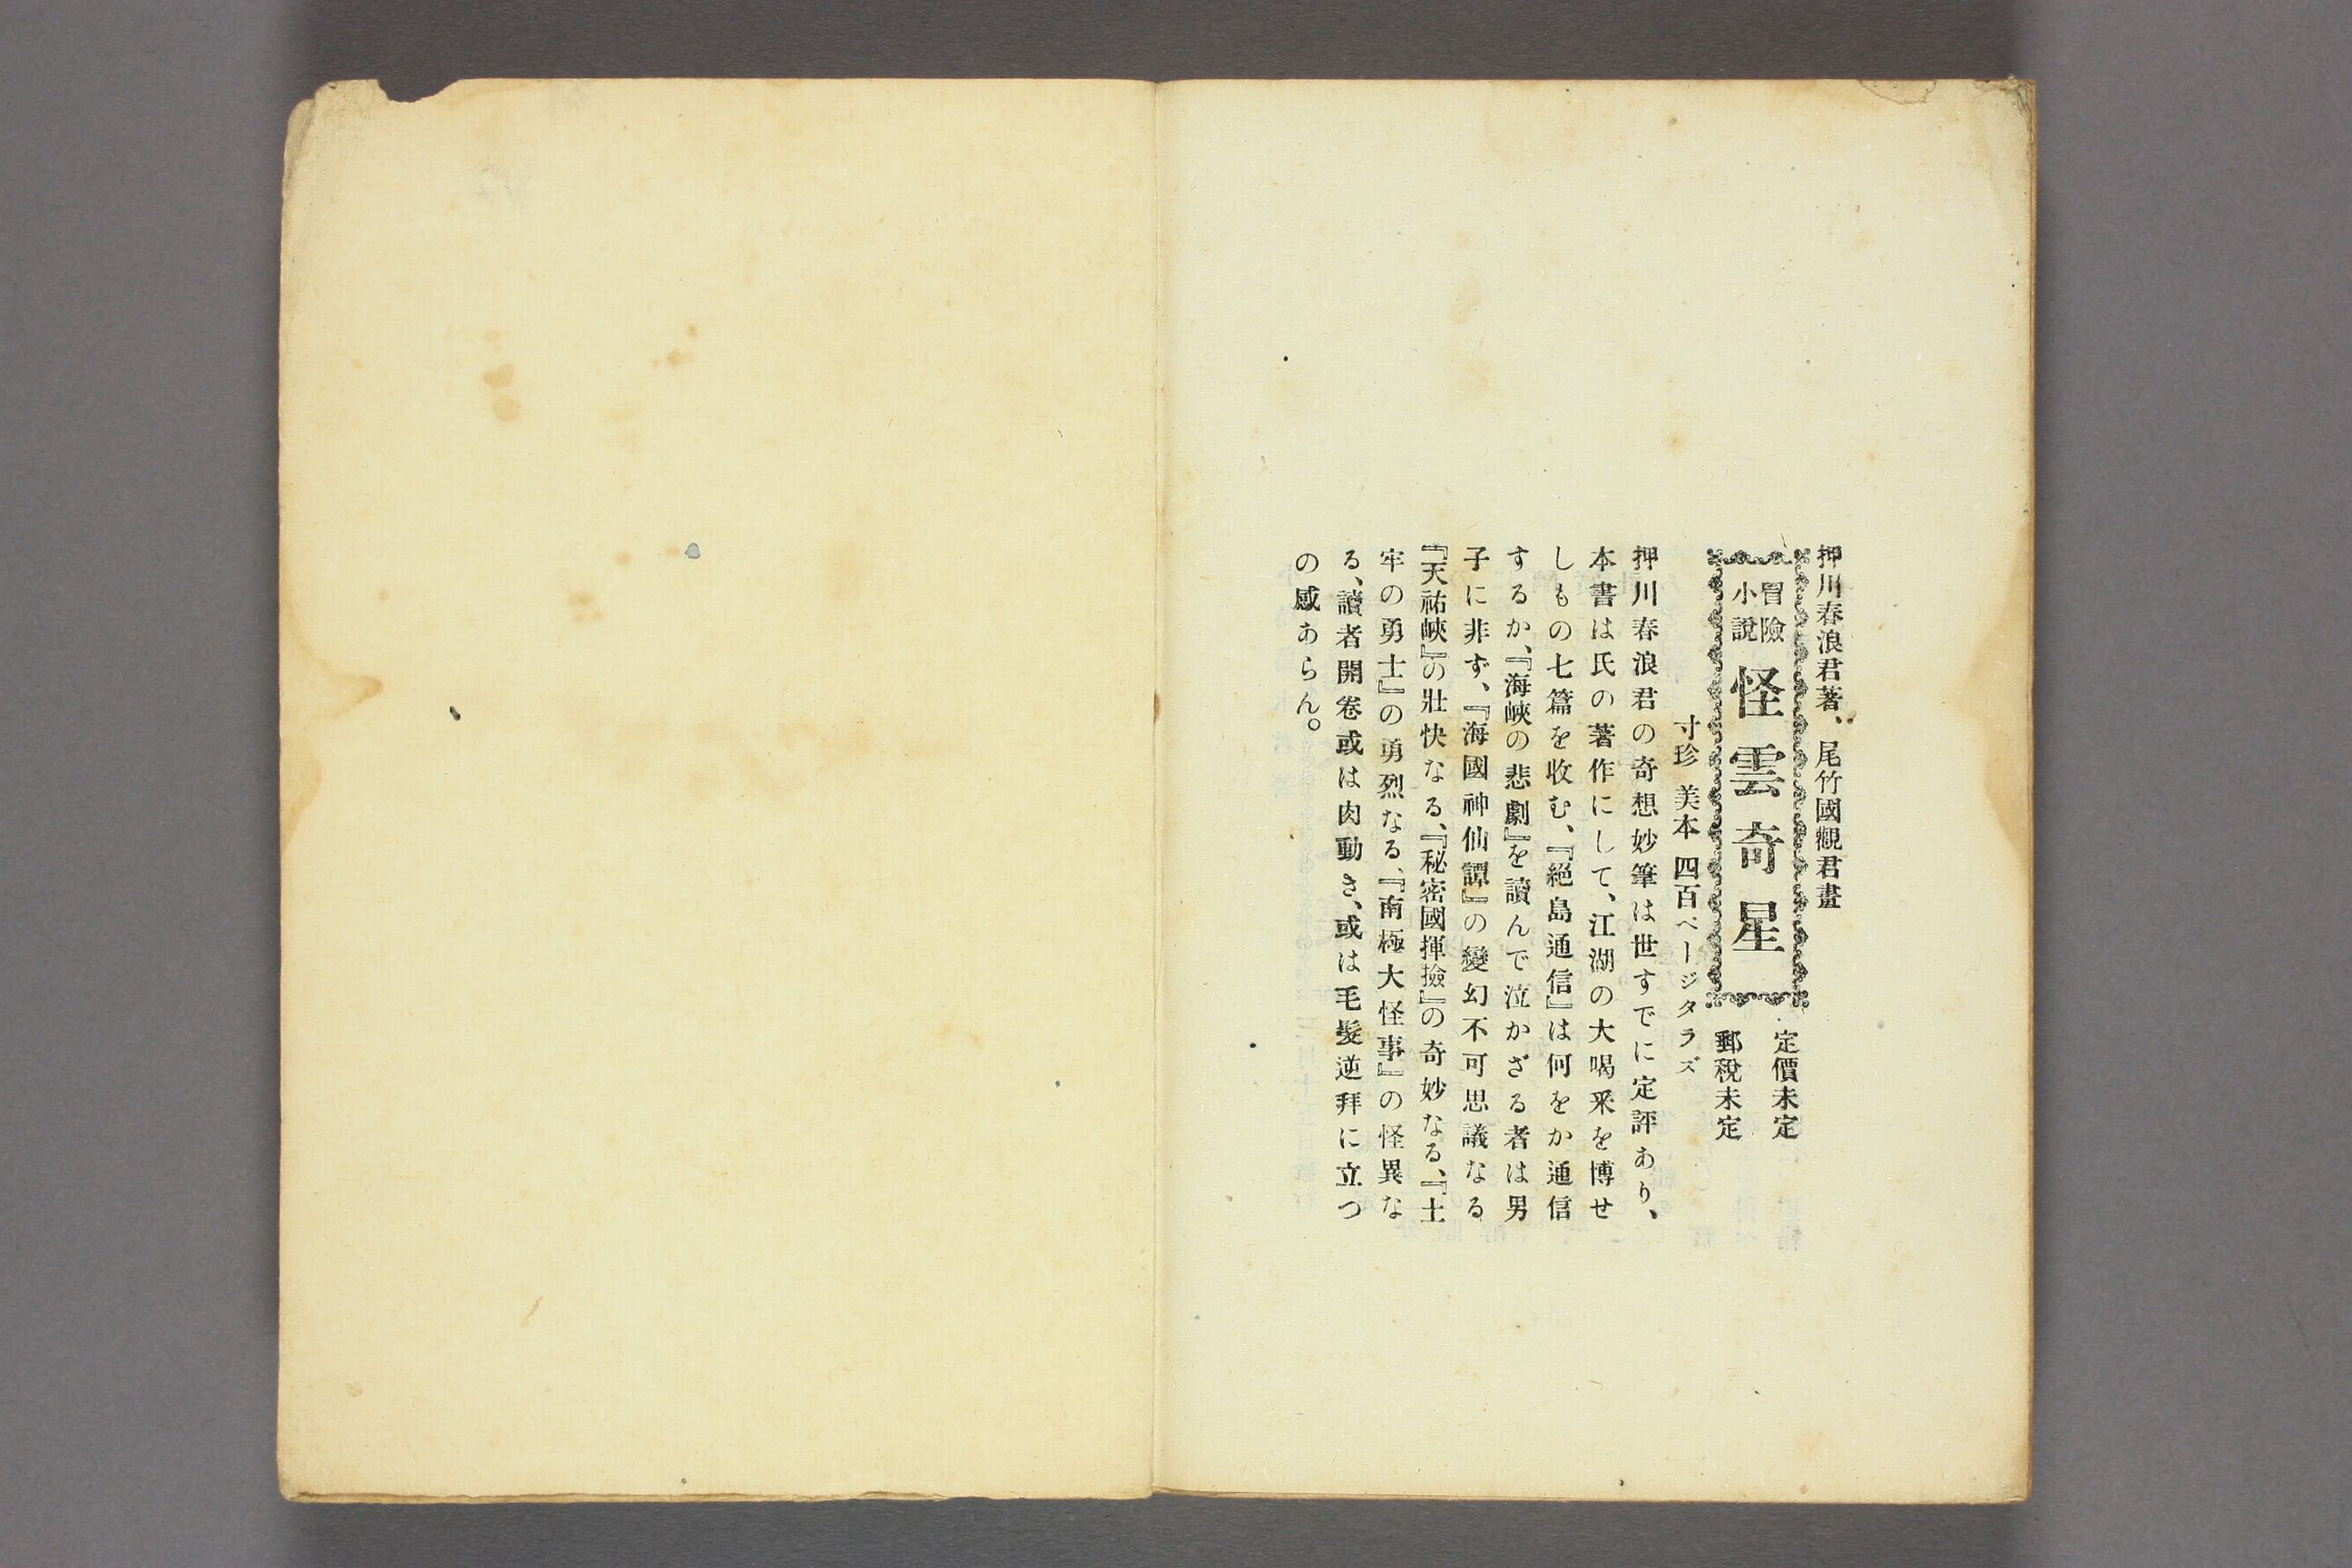 押川春浪君著、尾竹國觀君畫
冒險
小說
怪雲奇星
定價未定
郵稅未定
寸珍 美本 四百ページタラズ
押川春浪君の奇想妙筆は世すでに定評あり、
本書は氏の著作にして、江湖の大喝釆を博せ
しもの七篇を收む、『絕島通信』は何をか通信
するか、『海峽の悲劇』を讀んで泣かざる者は男
子に非ず、『海國神仙譚』の變幻不可思議なる
『天祐峽』の壯快なる、『秘密國揮撿』の奇妙なる、『土
牢の勇士』の勇烈なる、『南極大怪事』の怪異な
る、讀者開卷或は肉動き、或は毛髮逆拜に立つ
の感あらん。